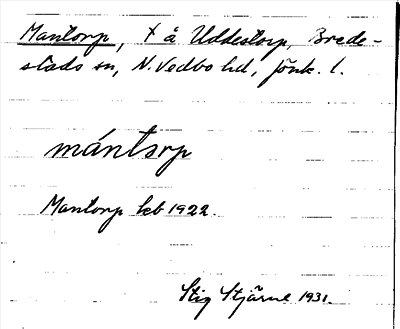 Mantorp, × å Uddestorp, Brede-
stads sn, N. Vedbo hd, Jönk. l.
mántorp
Mantorp kb 1922.
Stig Stjärne 1931.